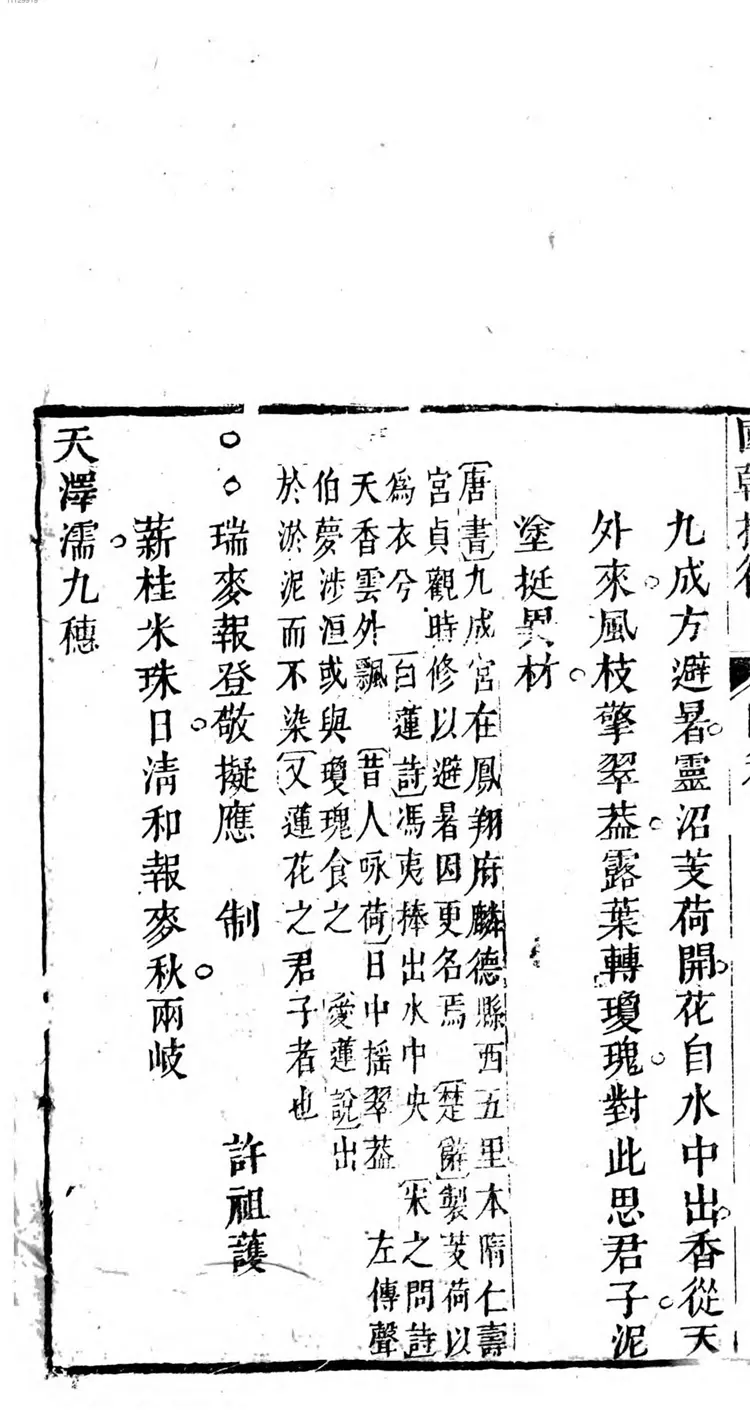 九成方避暑靈沼芰荷開花自水中出香從天
外來風枝擎翠葢露葉轉瓊瑰對此思君子泥
塗挺異材
〔唐書〕九成宮在鳳翔府麟德縣西五里本隋仁壽
宮貞觀時修以避暑因更名焉　〔楚辭〕製芰荷以
爲衣兮　〔白蓮詩〕馮夷捧出水中央　〔宋之問詩〕
天香雲外飄　〔昔人咏荷〕日中摇翠葢　左傳聲
伯夢涉洹或與瓊瑰食之　〔愛蓮說〕出
於淤泥而不染〔又〕蓮花之君子者也
瑞麥報登敬擬應　制　許祖䕶
薪桂米珠日清和報麥秋兩岐
天澤濡九穗